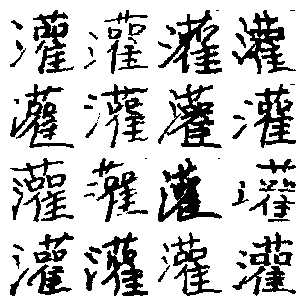 灌灌灌灌
灌灌灌灌
灌灌灌灌
灌灌灌灌